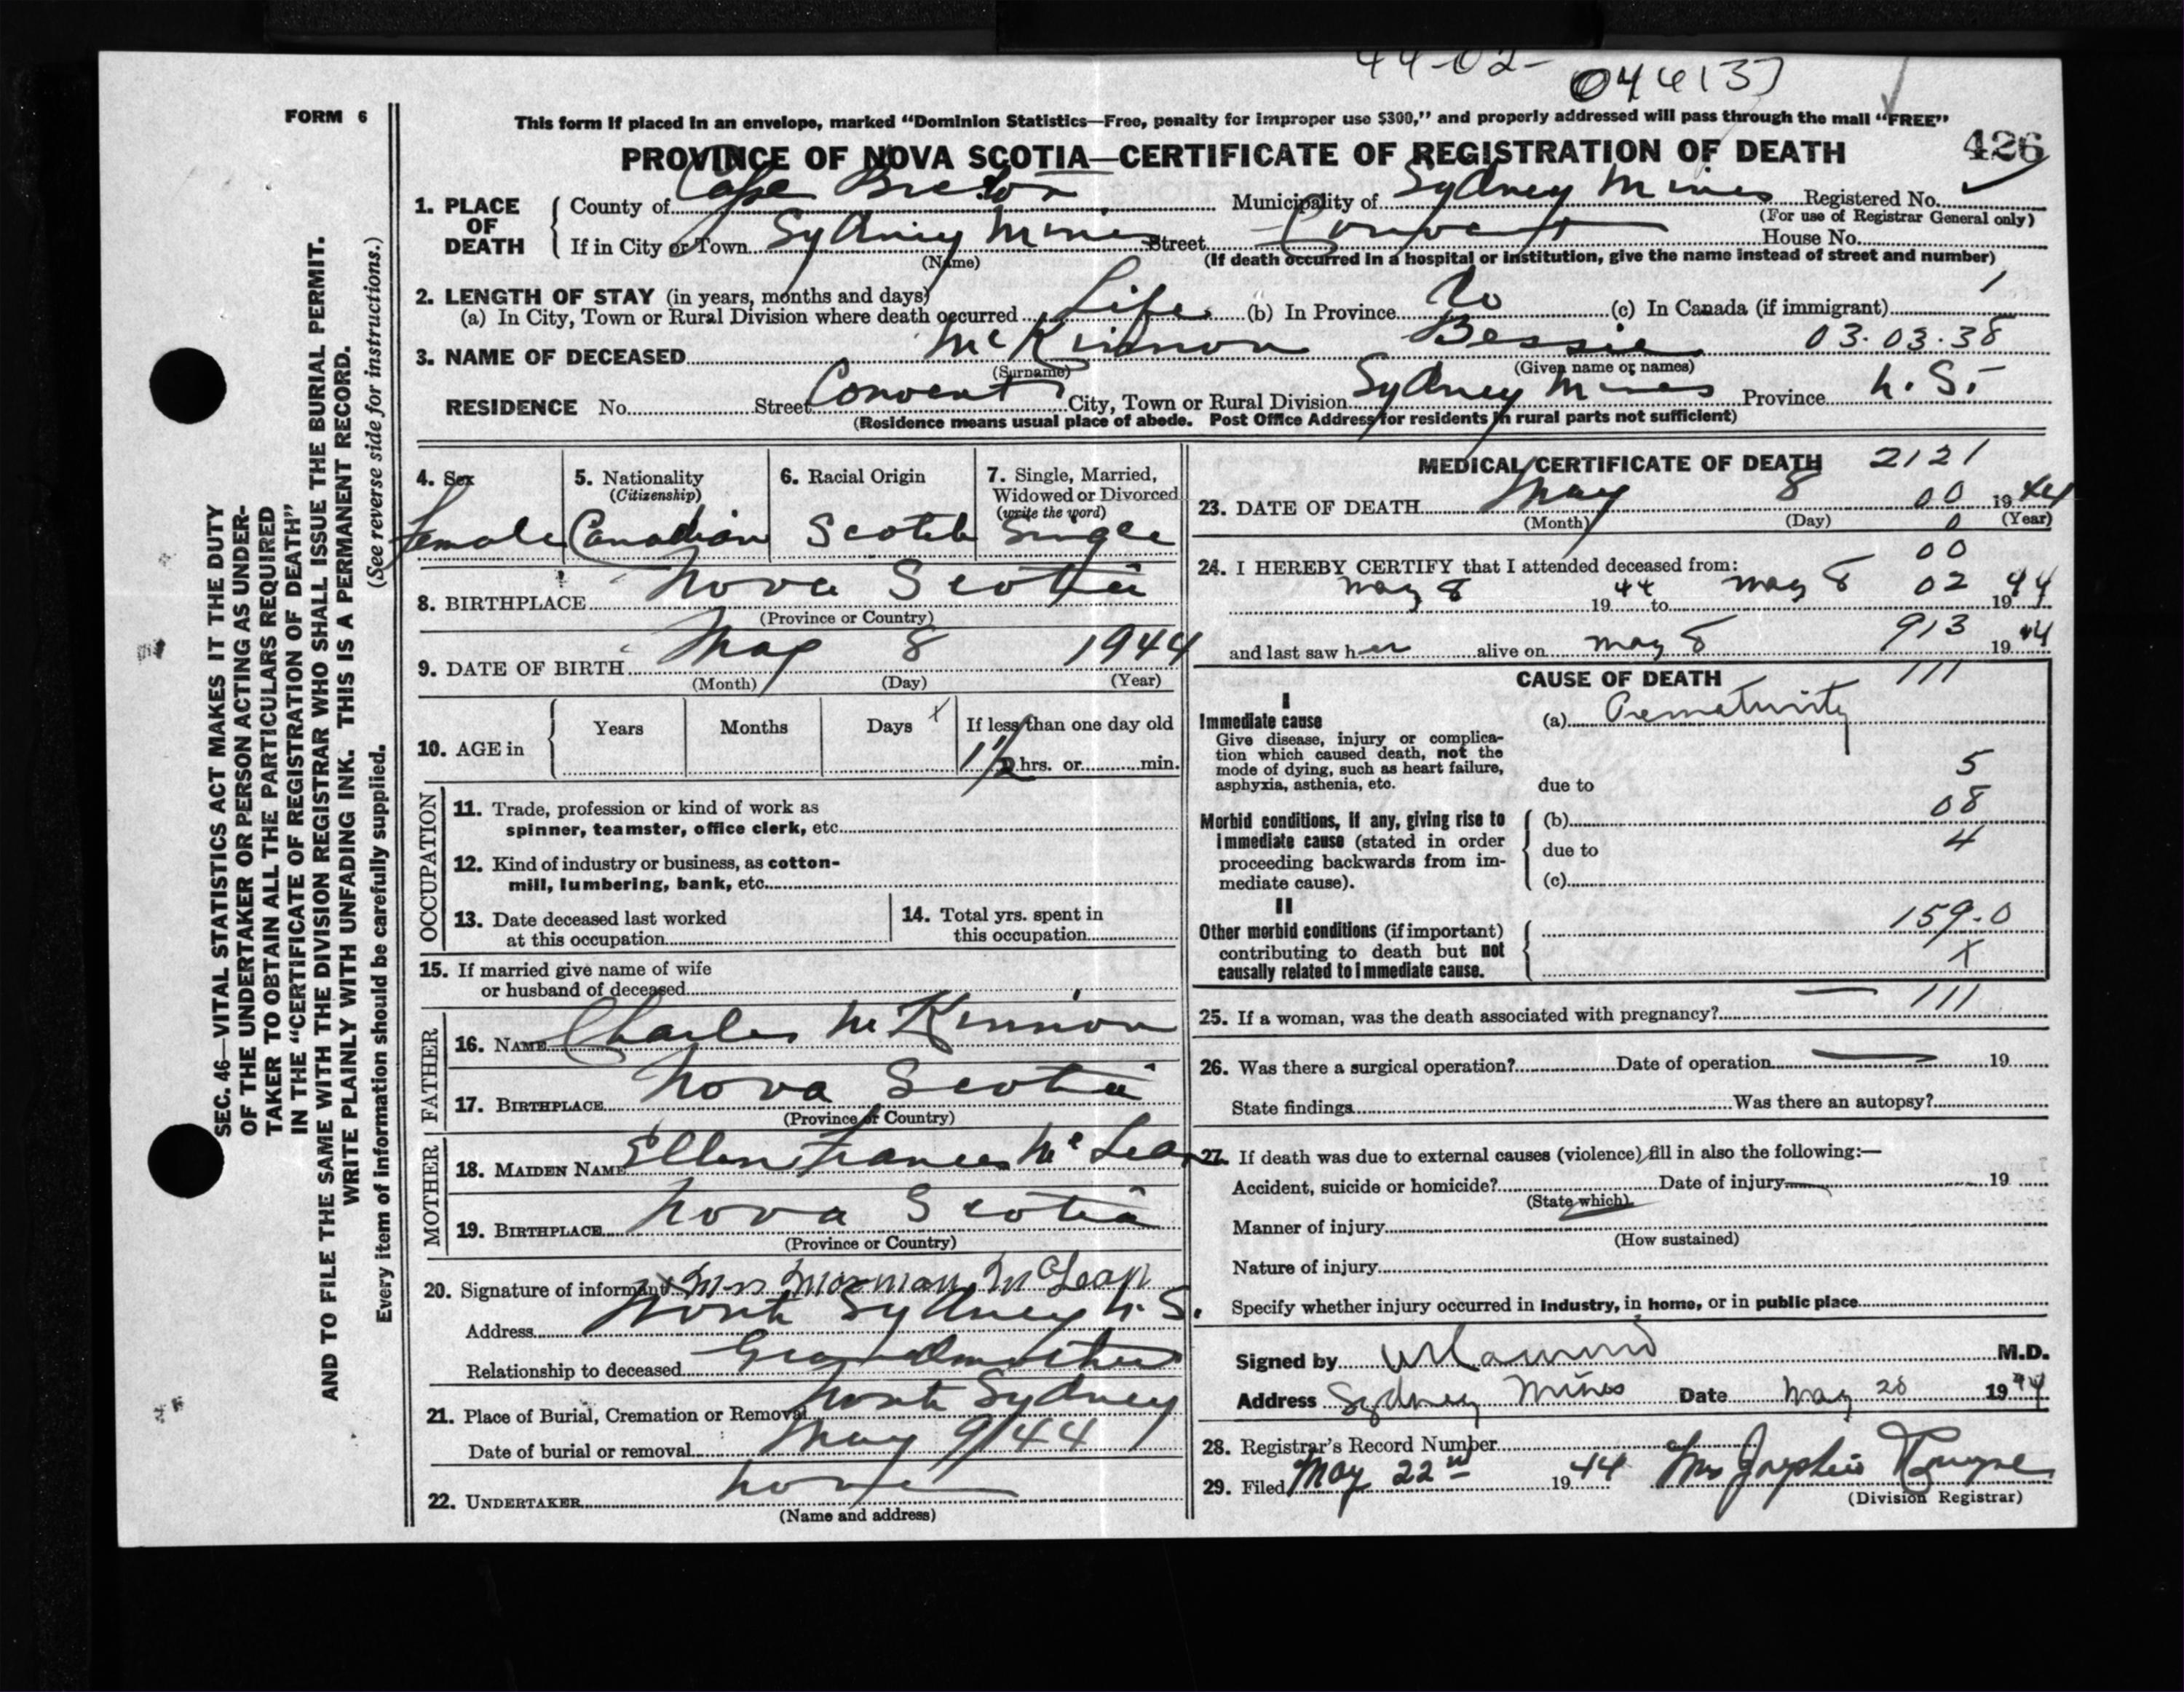 44-02-
044137
FORM 6
This form if placed in an envelope, marked "Dominion Statistics—Free, penalty for improper use $300," and properly addressed will pass through the mail "FREE"
PROVINCE OF NOVA SCOTIA—CERTIFICATE OF REGISTRATION OF DEATH 426
1. PLACE OF DEATH
County of Cape Breton Municipality of Sydney Mines Registered No.
(For use of Registrar General only)
If in City or Town Sydney Mines Street Convent House No.
(Name) (If death occurred in a hospital or institution, give the name instead of street and number)
2. LENGTH OF STAY (in years, months and days) 1
(a) In City, Town or Rural Division where death occurred Life (b) In Province Do (c) In Canada (if immigrant)
3. NAME OF DECEASED McKinnon Bessie 03.03.38
(Surname) (Given name or names)
RESIDENCE No. Street Convent City, Town or Rural Division Sydney Mines Province N.S.
(Residence means usual place of abode. Post Office Address for residents in rural parts not sufficient)
4. Sex
Female
5. Nationality
(Citizenship)
Canadian
6. Racial Origin
Scotch
7. Single, Married,
Widowed or Divorced
(write the word)
Single
8. BIRTHPLACE Nova Scotia
(Province or Country)
9. DATE OF BIRTH May 8 1944
(Month) (Day) (Year)
10. AGE in Years Months Days x If less than one day old
1 1/2 hrs. or min.
OCCUPATION
11. Trade, profession or kind of work as
spinner, teamster, office clerk, etc.
12. Kind of industry or business, as cotton-
mill, lumbering, bank, etc.
13. Date deceased last worked
at this occupation
14. Total yrs. spent in
this occupation
15. If married give name of wife
or husband of deceased
FATHER
16. NAME Charles McKinnon
17. BIRTHPLACE Nova Scotia
(Province or Country)
MOTHER
18. MAIDEN NAME Ellen Frances McLean
19. BIRTHPLACE Nova Scotia
(Province or Country)
20. Signature of informant x Mrs Norman McLean
Address North Sydney N.S.
Relationship to deceased Grandmother
21. Place of Burial, Cremation or Removal North Sydney
Date of burial or removal May 9/44
22. UNDERTAKER none
(Name and address)
MEDICAL CERTIFICATE OF DEATH 2121
23. DATE OF DEATH May 8 00 1944
(Month) (Day) 0 (Year)
00
24. I HEREBY CERTIFY that I attended deceased from:
May 8 1944 to May 8 02 1944
and last saw her alive on May 8 913 1944
CAUSE OF DEATH 111
I
Immediate cause
Give disease, injury or complica-
tion which caused death, not the
mode of dying, such as heart failure,
asphyxia, asthenia, etc.
(a) Prematurity
5
due to
08
Morbid conditions, if any, giving rise to
immediate cause (stated in order
proceeding backwards from im-
mediate cause).
(b)
4
due to
(c)
II
Other morbid conditions (if important)
contributing to death but not
causally related to immediate cause.
159.0
X
111
25. If a woman, was the death associated with pregnancy?
26. Was there a surgical operation? Date of operation 19
State findings Was there an autopsy?
27. If death was due to external causes (violence) fill in also the following:—
Accident, suicide or homicide? Date of injury 19
(State which)
Manner of injury
(How sustained)
Nature of injury
Specify whether injury occurred in industry, in home, or in public place
Signed by M.D.
Address Sydney Mines Date May 20 1944
28. Registrar's Record Number
29. Filed May 22nd 1944 Mrs
(Division Registrar)
SEC. 46—VITAL STATISTICS ACT MAKES IT THE DUTY
OF THE UNDERTAKER OR PERSON ACTING AS UNDER-
TAKER TO OBTAIN ALL THE PARTICULARS REQUIRED
IN THE "CERTIFICATE OF REGISTRATION OF DEATH"
AND TO FILE THE SAME WITH THE DIVISION REGISTRAR WHO SHALL ISSUE THE BURIAL PERMIT.
WRITE PLAINLY WITH UNFADING INK. THIS IS A PERMANENT RECORD.
Every item of information should be carefully supplied. (See reverse side for instructions.)